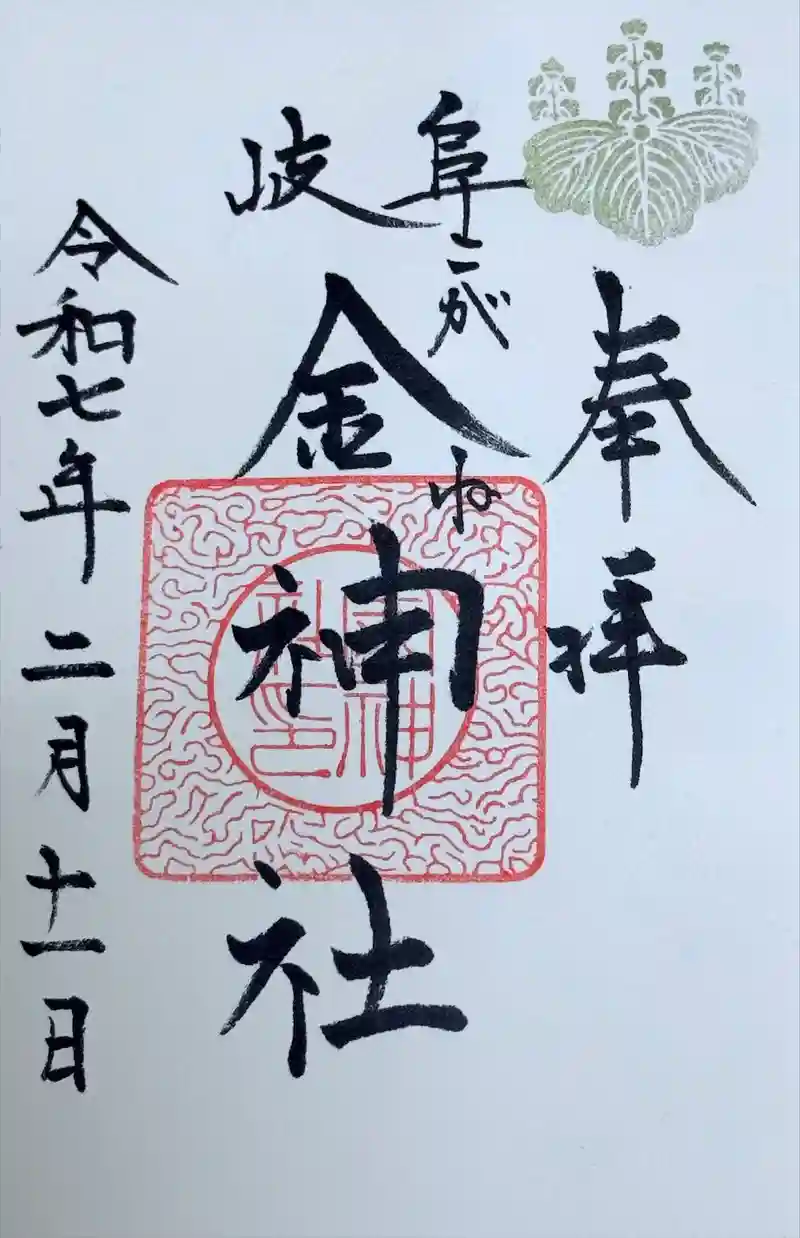 奉拝
岐阜
こがね
金神社
令和七年二月十一日
金神社印